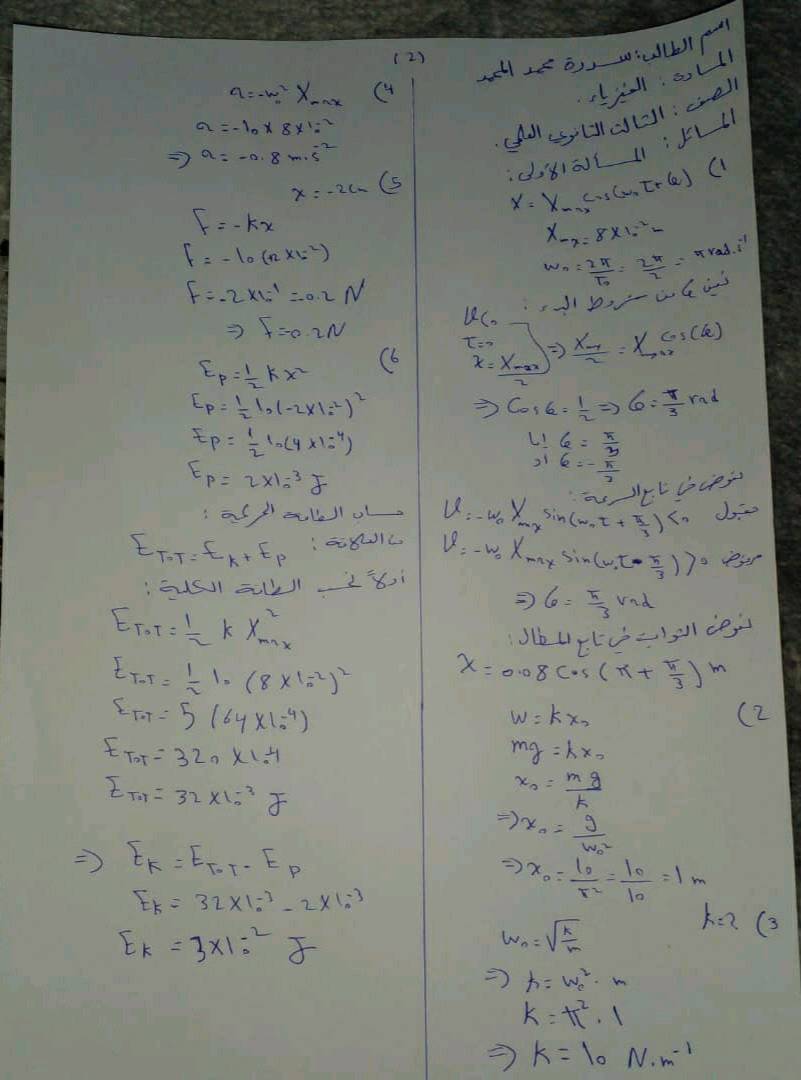 اسم الطالب: سدرة محمد المحمد
المادة: الفيزياء.
الصف: الثالث الثانوي العلمي.
المسائل: المسألة الأولى:
1) X = Xmax cos(ω₀t+φ)
Xmax = 8×10⁻² m
ω₀ = 2π/T₀ = 2π/2 = π rad.s⁻¹
نعين φ من شروط البدء:
v<0
t=0
x = Xmax/2 } ⇒ Xmax/2 = Xmax cos(φ)
⇒ cosφ = 1/2 ⇒ φ = π/3 rad
إما φ = π/3
أو φ = -π/3
نعوض في تابع السرعة:
v = -ω₀ Xmax sin(ω₀t + π/3) < 0 مقبول
v = -ω₀ Xmax sin(ω₀t - π/3) > 0 مرفوض
⇒ φ = π/3 rad
نعوض الثوابت في تابع المطال:
x = 0.08 cos(π + π/3) m
2) W = kx₀
mg = kx₀
x₀ = mg/k
⇒ x₀ = g/ω₀²
⇒ x₀ = 10/π² = 10/10 = 1 m
3) k=?
ω₀ = √(k/m)
⇒ k = ω₀² . m
k = π² . 1
⇒ k = 10 N.m⁻¹
(2)
4) a = -ω₀² Xmax
a = -10 × 8×10⁻²
⇒ a = -0.8 m.s⁻²
5) x = -2cm
F = -kx
F = -10(+2×10⁻²)
F = -2×10⁻¹ = -0.2 N
⇒ F = 0.2 N
6) Ep = 1/2 k x²
Ep = 1/2 10(-2×10⁻²)²
Ep = 1/2 10(4×10⁻⁴)
Ep = 2×10⁻³ J
حساب الطاقة الحركية:
من العلاقة: ETOT = EK + EP
أولاً نحسب الطاقة الكلية:
ETOT = 1/2 k X²max
ETOT = 1/2 10 (8×10⁻²)²
ETOT = 5 (64×10⁻⁴)
ETOT = 320 ×10⁻⁴
ETOT = 32×10⁻³ J
⇒ EK = ETOT - EP
EK = 32×10⁻³ - 2×10⁻³
EK = 3×10⁻² J